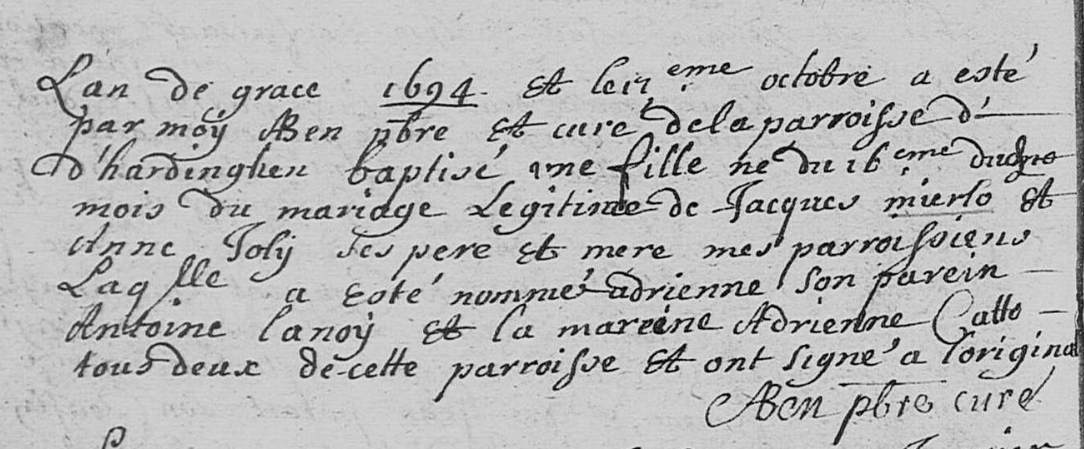 L'an de grace 1694 et le 17eme octobre a esté
par moÿ ABen pbre et curé de la parroisse d'
d'hardinghen baptisé une fille ne du 16eme dudit
mois du mariage Legitime de Jacques mierlo et
Anne Jolÿ ses pere et mere mes parroissiens
Laqslle a esté nommé adrienne son parein
Antoine lanoÿ et la mareine Adrienne Catto
tous deux de cette parroisse et ont signé a l'origina
ABen pbre curé